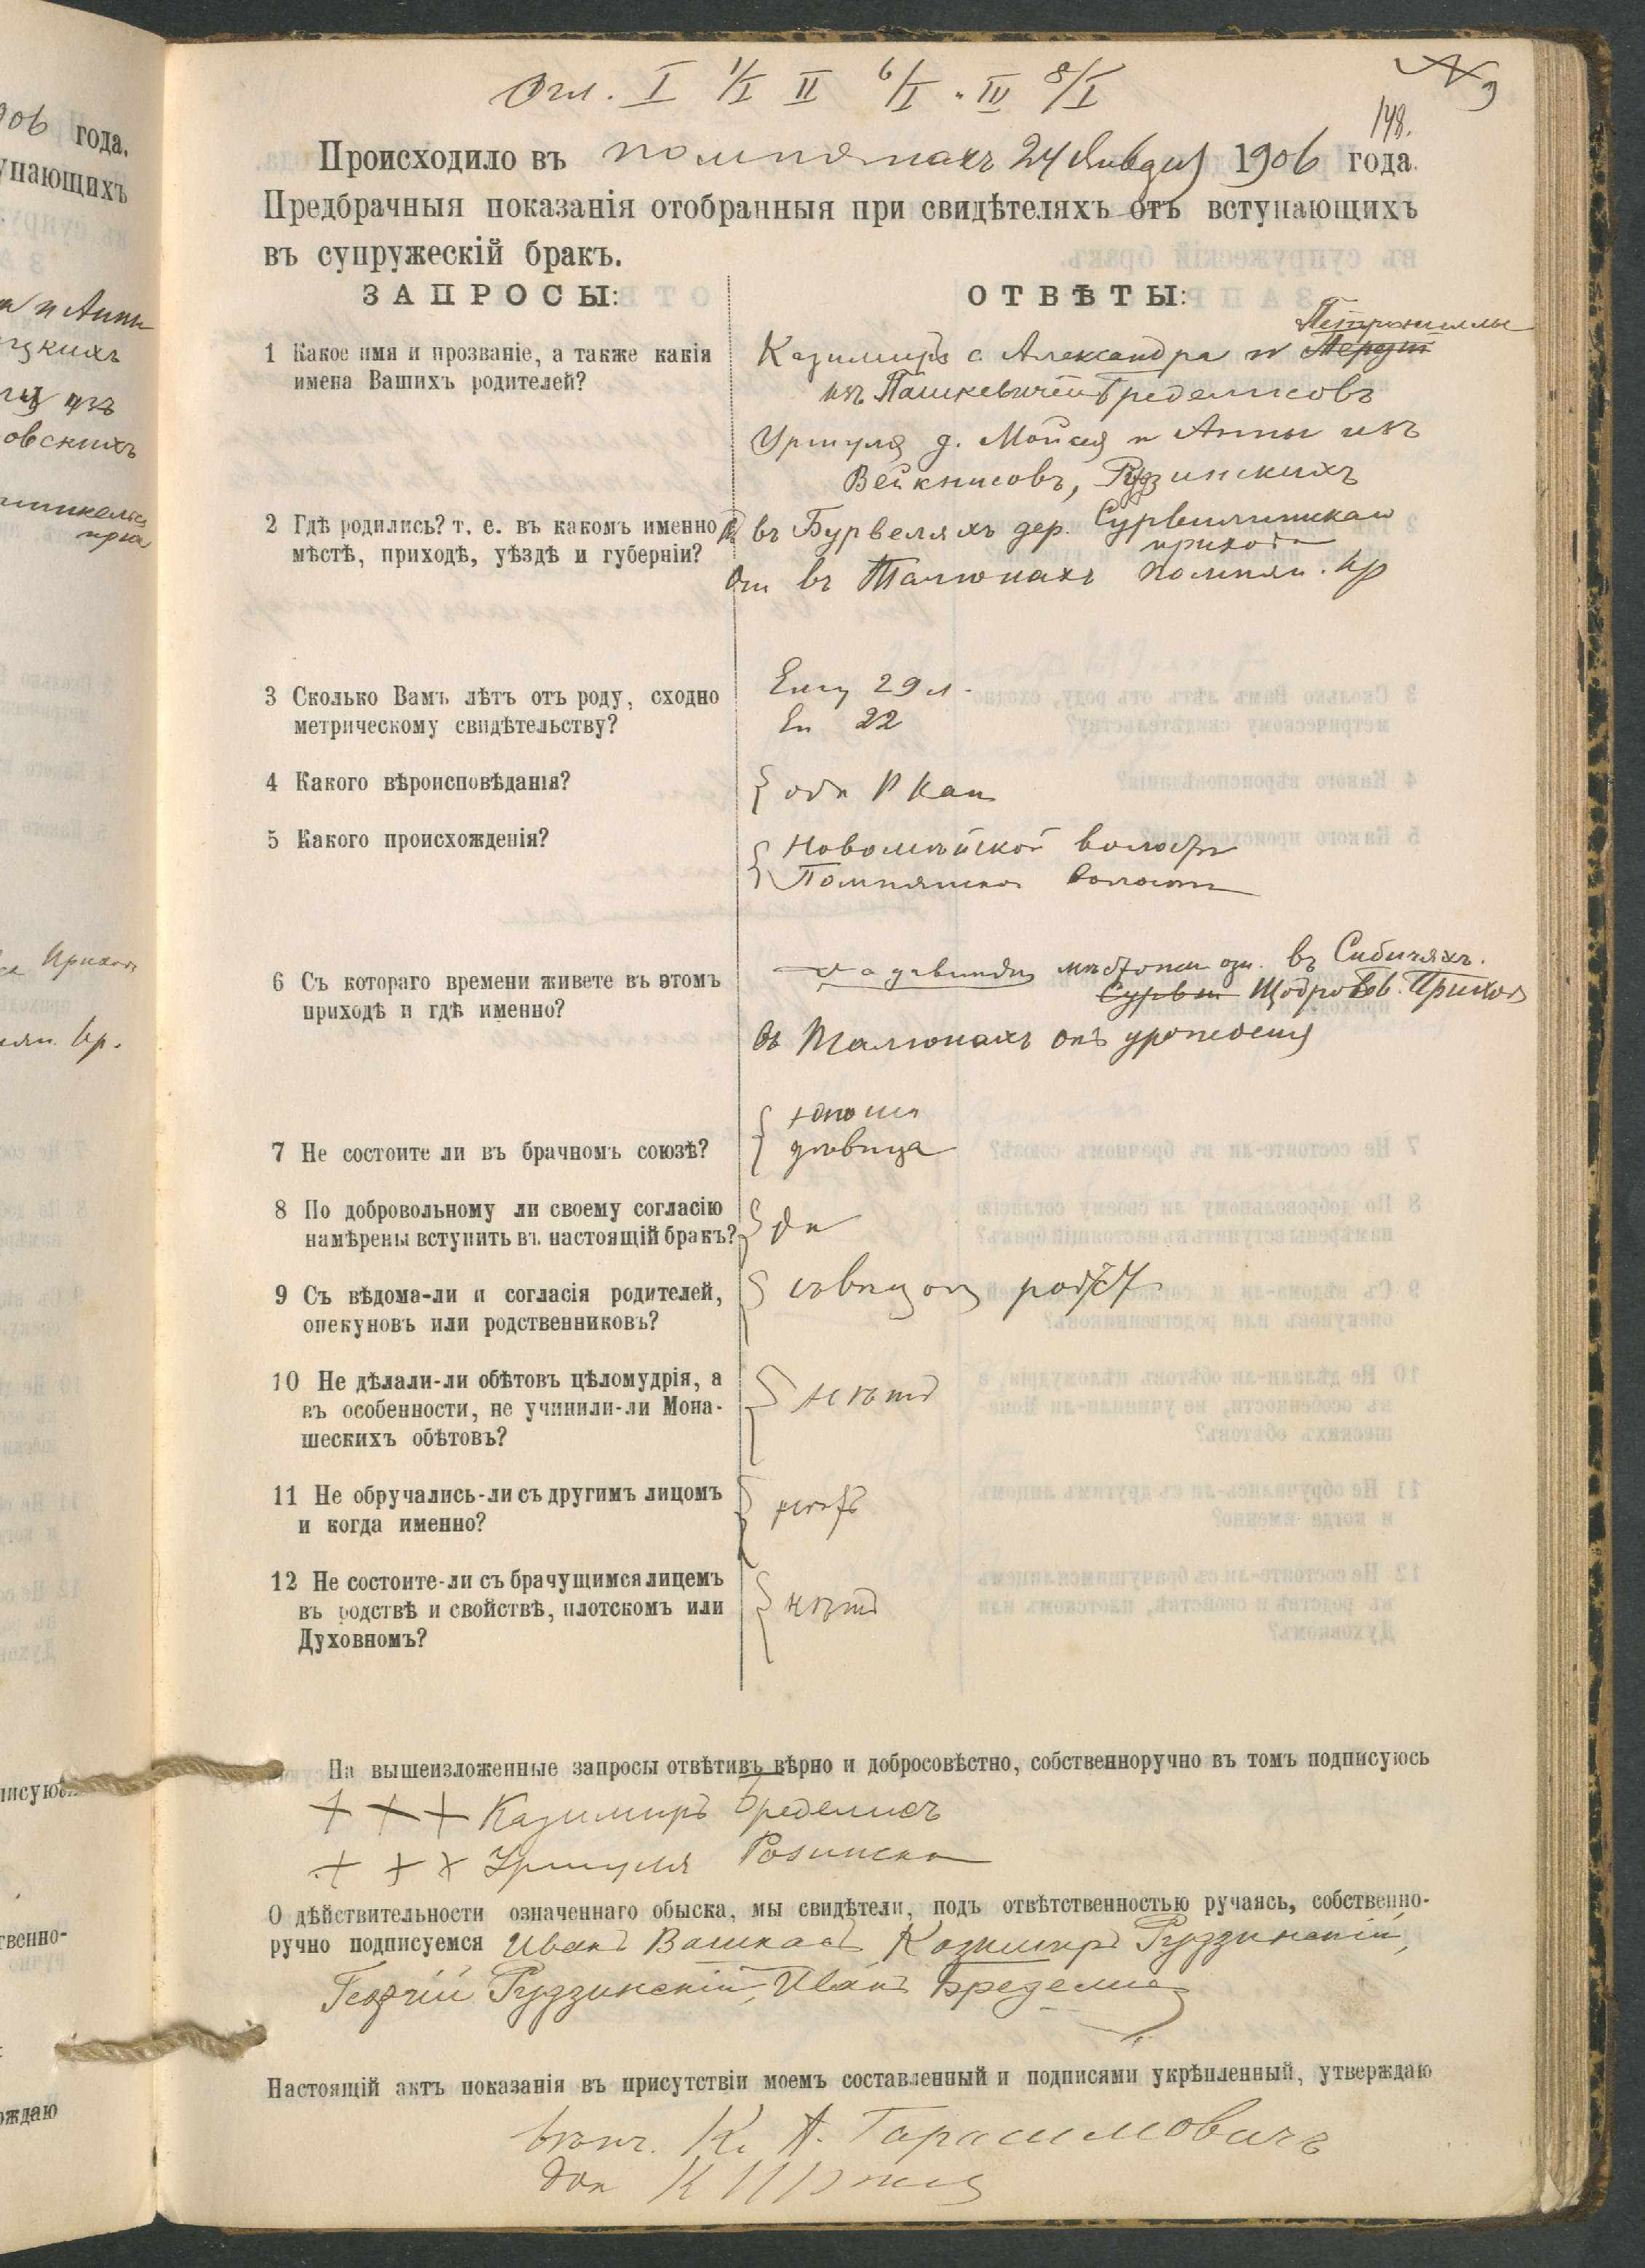 Огл. I 1/I II 6/I III 8/I
№ 9
148.
Происходило въ помпянахъ 24 Января 1906 года.
Предбрачныя показанія отобранныя при свидѣтеляхъ отъ вступающихъ
въ супружескій бракъ.
ЗАПРОСЫ:
ОТВѢТЫ:
1 Какое имя и прозваніе, а также какія
имена Вашихъ родителей?
Петронеллы
Казимиръ с Александра и
изъ Пашкевичей Бределисовъ
Уршуля д. Мойсея и Анны изъ
Вейкнисовъ, Рудзинскихъ
2 Гдѣ родились? т. е. въ какомъ именно
мѣстѣ, приходѣ, уѣздѣ и губерніи?
въ Бурвеляхъ дер.
прихода
въ Талюнахъ помпян. пр
3 Сколько Вамъ лѣтъ отъ роду, сходно
метрическому свидѣтельству?
Ему 29 л.
Ей 22
4 Какого вѣроисповѣданія?
оба Р Кат
5 Какого происхожденія?
Новомѣйской волости
Помпянской волости
6 Съ котораго времени живете въ этомъ
приходѣ и гдѣ именно?
въ Сибичяхъ.
Приход
въ Талюнахъ отъ урожденія
7 Не состоите ли въ брачномъ союзѣ?
юноша
дѣвица
8 По добровольному ли своему согласію
намѣрены вступить въ настоящій бракъ?
да
9 Съ вѣдома-ли и согласія родителей,
опекуновъ или родственниковъ?
10 Не дѣлали-ли обѣтовъ цѣломудрія, а
въ особенности, не учинили-ли Мона-
шескихъ обѣтовъ?
нѣтъ
11 Не обручались-ли съ другимъ лицомъ
и когда именно?
нѣтъ
12 Не состоите-ли съ брачущимся лицемъ
въ родствѣ и свойствѣ, плотскомъ или
Духовномъ?
нѣтъ
На вышеизложенные запросы отвѣтивъ вѣрно и добросовѣстно, собственноручно въ томъ подписуюсь
+ + + Казимиръ Бределисъ
+ + + Уршуля
О дѣйствительности означеннаго обыска, мы свидѣтели, подъ отвѣтственностью ручаясь, собственно-
ручно подписуемся Иванъ Казимиръ Рудзинскій,
Георгій Рудзинскій, Иванъ Бределис
Настоящій актъ показанія въ присутствіи моемъ составленный и подписями укрѣпленный, утверждаю
К. А. Гарасимовичъ